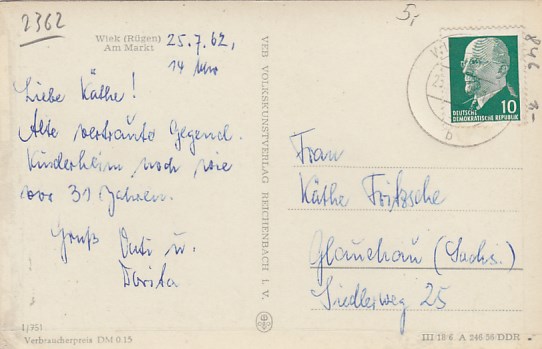 2362
5,
Wiek (Rügen)
Am Markt
25.7.62,
14 Uhr
Liebe Käthe!
Alte vertraute Gegend.
Kinderheim noch wie
vor 31 Jahren.
Gruß Outi u.
Dorita
I/751
Verbraucherpreis DM 0.15
VEB VOLKSKUNSTVERLAG REICHENBACH I. V.
10
DEUTSCHE
DEMOKRATISCHE REPUBLIK
b
Frau
Käthe Fritzsche
Glauchau (Sachs.)
Siedlerweg 25
III 18 6 A 246 56 DDR